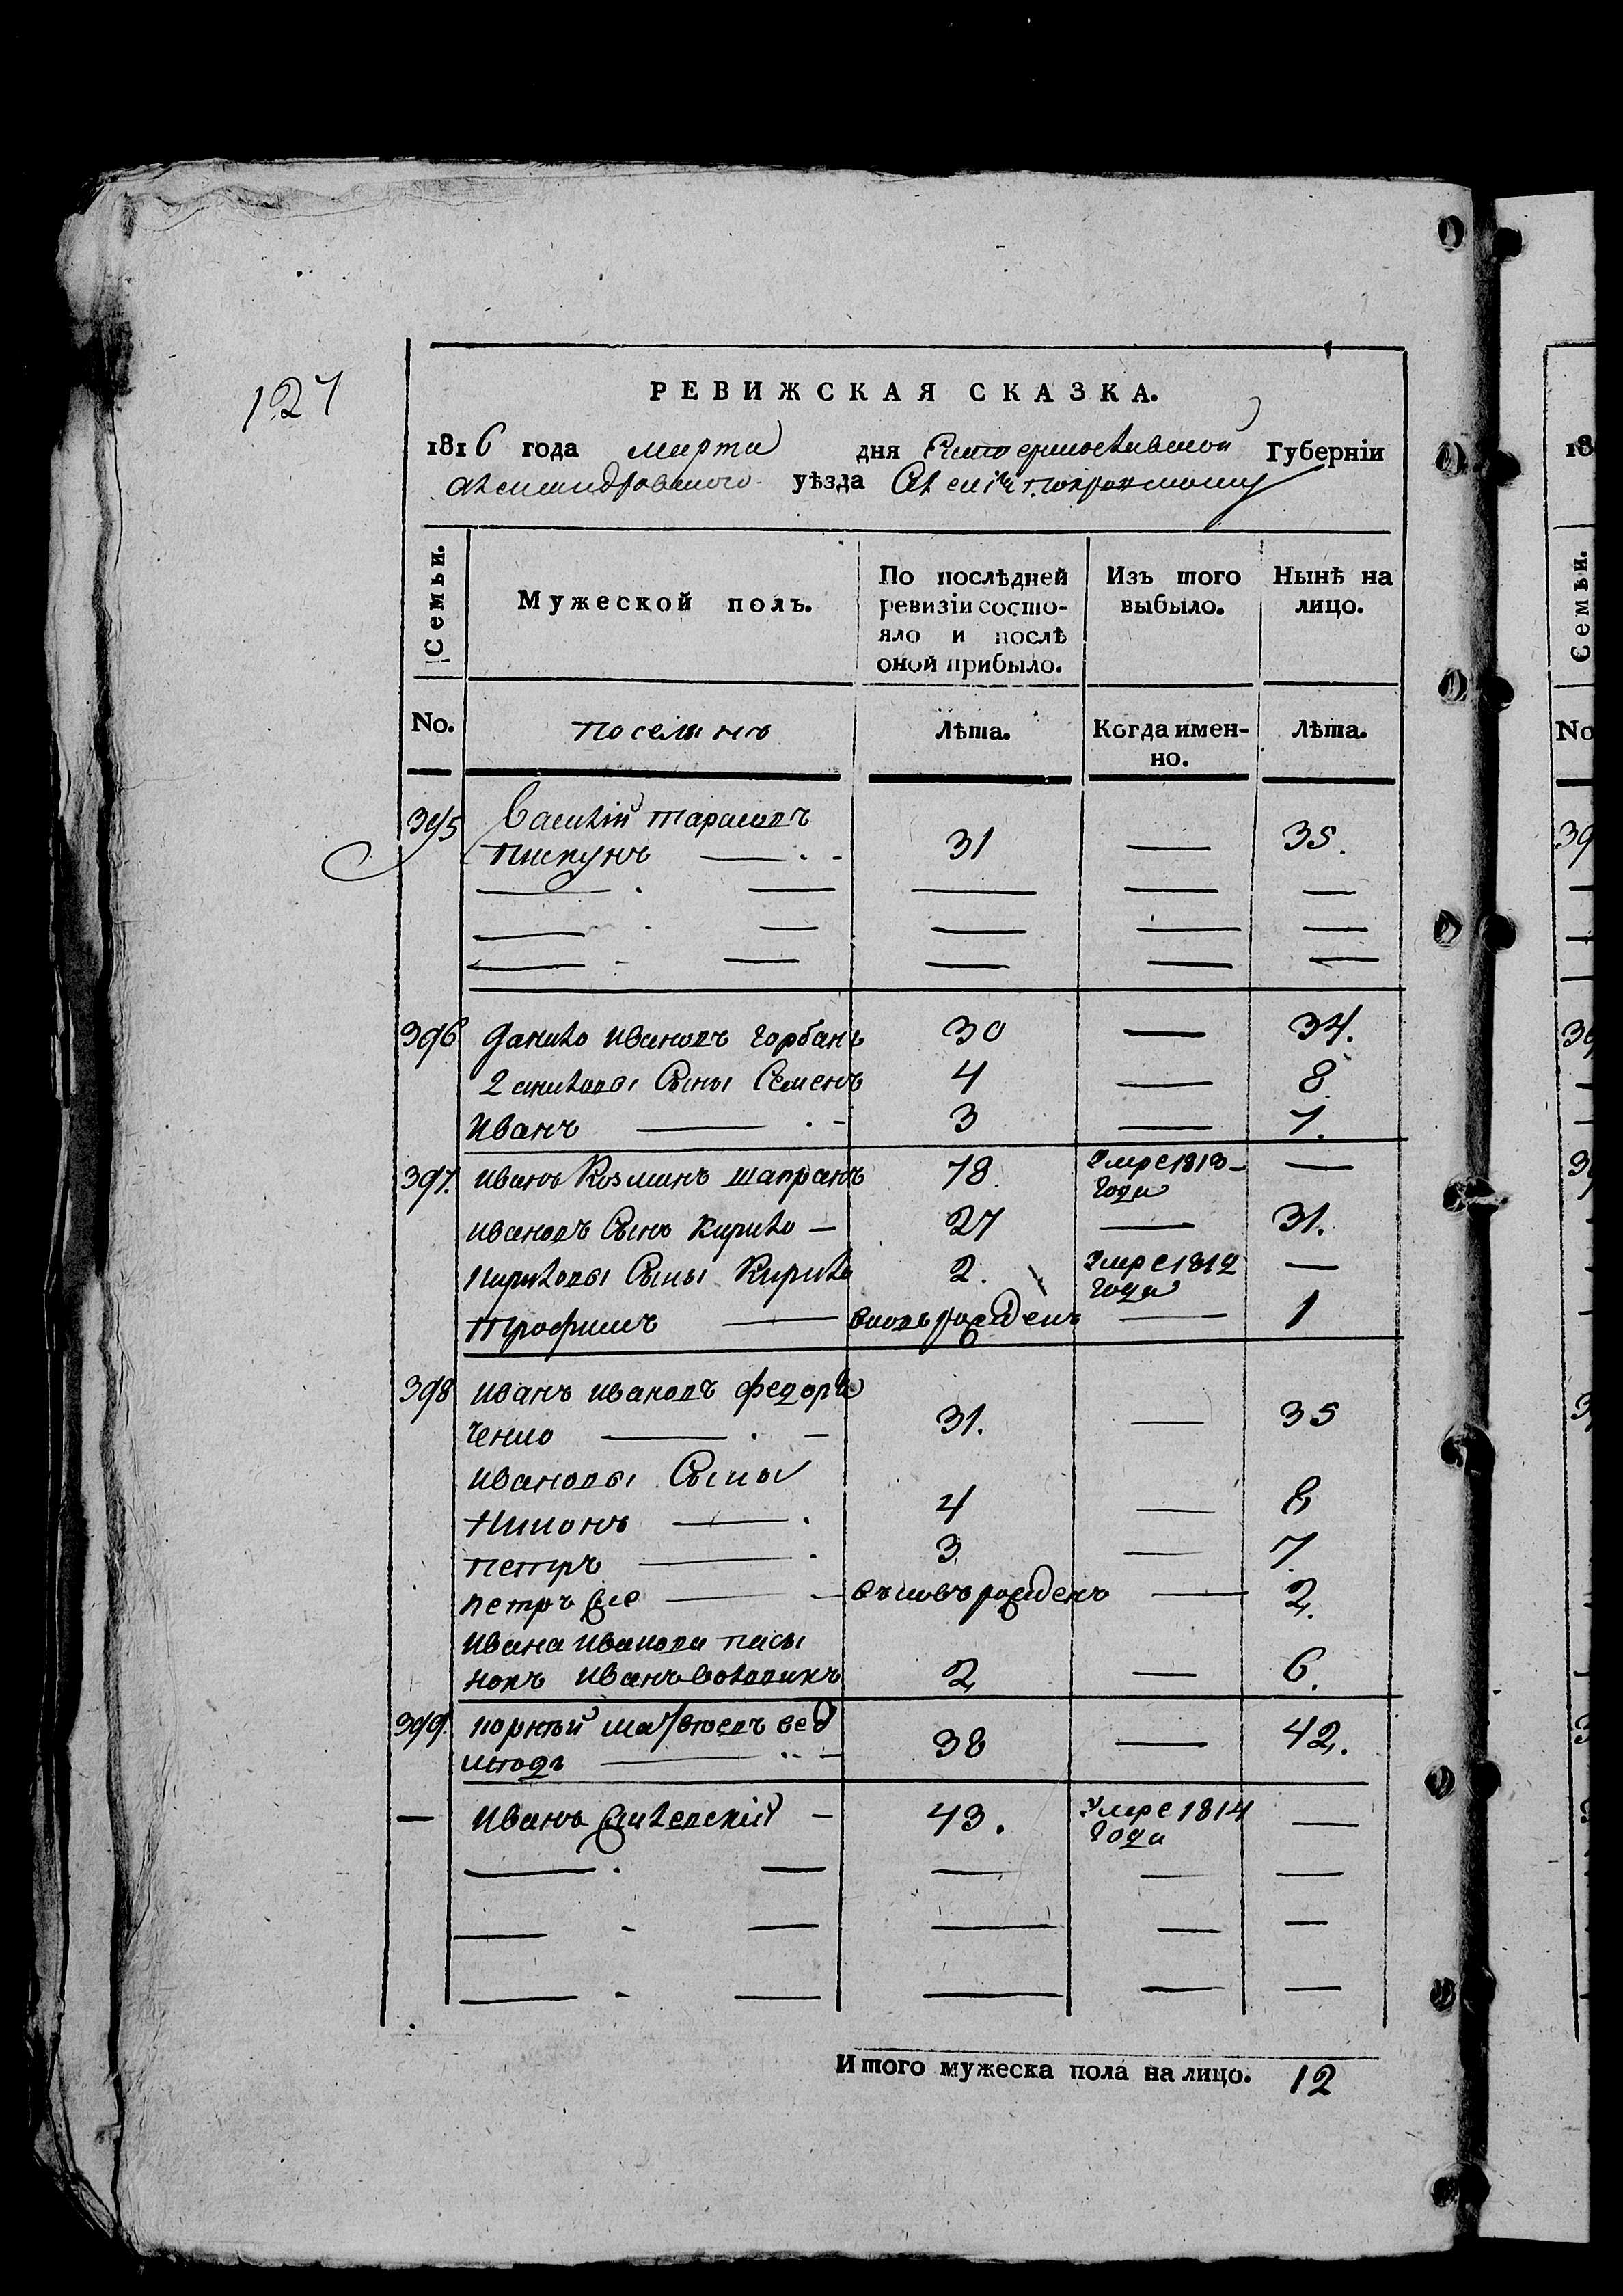 127
РЕВИЖСКАЯ СКАЗКА.
1816 года марта дня Екатеринославской Губерніи
Александровского уѣзда
Семьи.
Мужеской полъ.
По послѣдней
ревизіи состо-
яло и послѣ
оной прибыло.
Изъ того
выбыло.
Нынѣ на
лицо.
No.
поселянъ
Лѣта.
Когда имен-
но.
Лѣта.
395 Василій Тарасовъ
Пискунъ 31 — 35.
396 Данило Ивановъ Горбань 30 — 34.
Даниловы Сыны Семенъ 4 — 8
Иванъ 3 — 7.
397. Иванъ Козминъ Шапранъ 78. Умре 1813 —
года
Ивановъ Сынъ Кирило — 27 — 31.
Кириловы Сыны Кирило 2. Умре 1812 —
года
Трофимъ вновь рожденъ — 1
398 Иванъ Ивановъ Федор
ченко 31. — 35
Ивановы Сыны
4 — 8
Петръ 3 — 7.
Петръ же въновь рожденъ — 2.
Ивана Иванова пасы
нокъ Иванъ 2 — 6.
399. Корнѣй Матвѣевъ
38 — 42.
— Иванъ — 43. Умре 1814 —
года
Итого мужеска пола на лицо. 12
18
Семьи.
No
39